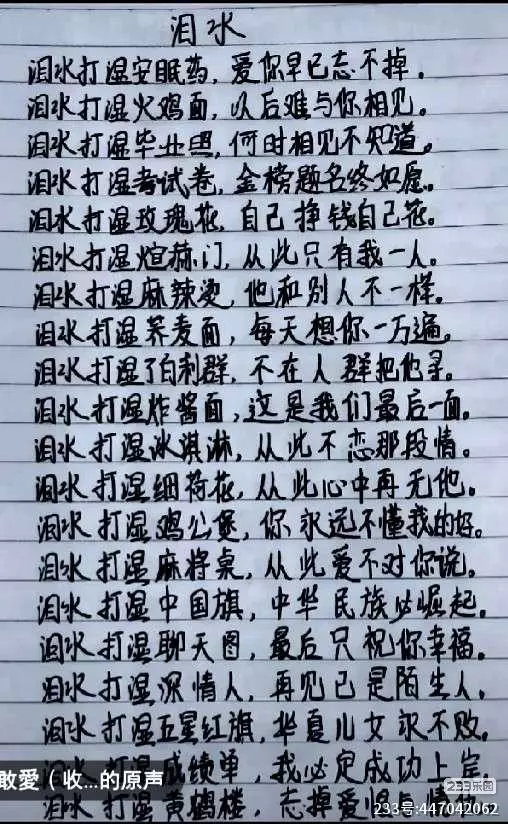 泪水
泪水打湿安眠药，爱你早已忘不掉。
泪水打湿火鸡面，以后难与你相见。
泪水打湿毕业照，何时相见不知道。
泪水打湿考试卷，金榜题名终如愿。
泪水打湿玫瑰花，自己挣钱自己花。
泪水打湿煊赫门，从此只有我一人。
泪水打湿麻辣烫，他和别人不一样。
泪水打湿荞麦面，每天想你一万遍。
泪水打湿了白利群，不在人群把他寻。
泪水打湿炸酱面，这是我们最后一面。
泪水打湿冰淇淋，从此不恋那段情。
泪水打湿细荷花，从此心中再无他。
泪水打湿鸡公堡，你永远不懂我的好。
泪水打湿麻将桌，从此爱不对你说。
泪水打湿中国旗，中华民族必崛起。
泪水打湿聊天图，最后只祝你幸福。
泪水打湿深情人，再见已是陌生人。
泪水打湿五星红旗，华夏儿女永不败。
成绩单，我必定成功上岸。
敢愛（收...的原声
泪水打湿黄鹤楼，忘掉爱恨
233乐园
233号:447042062